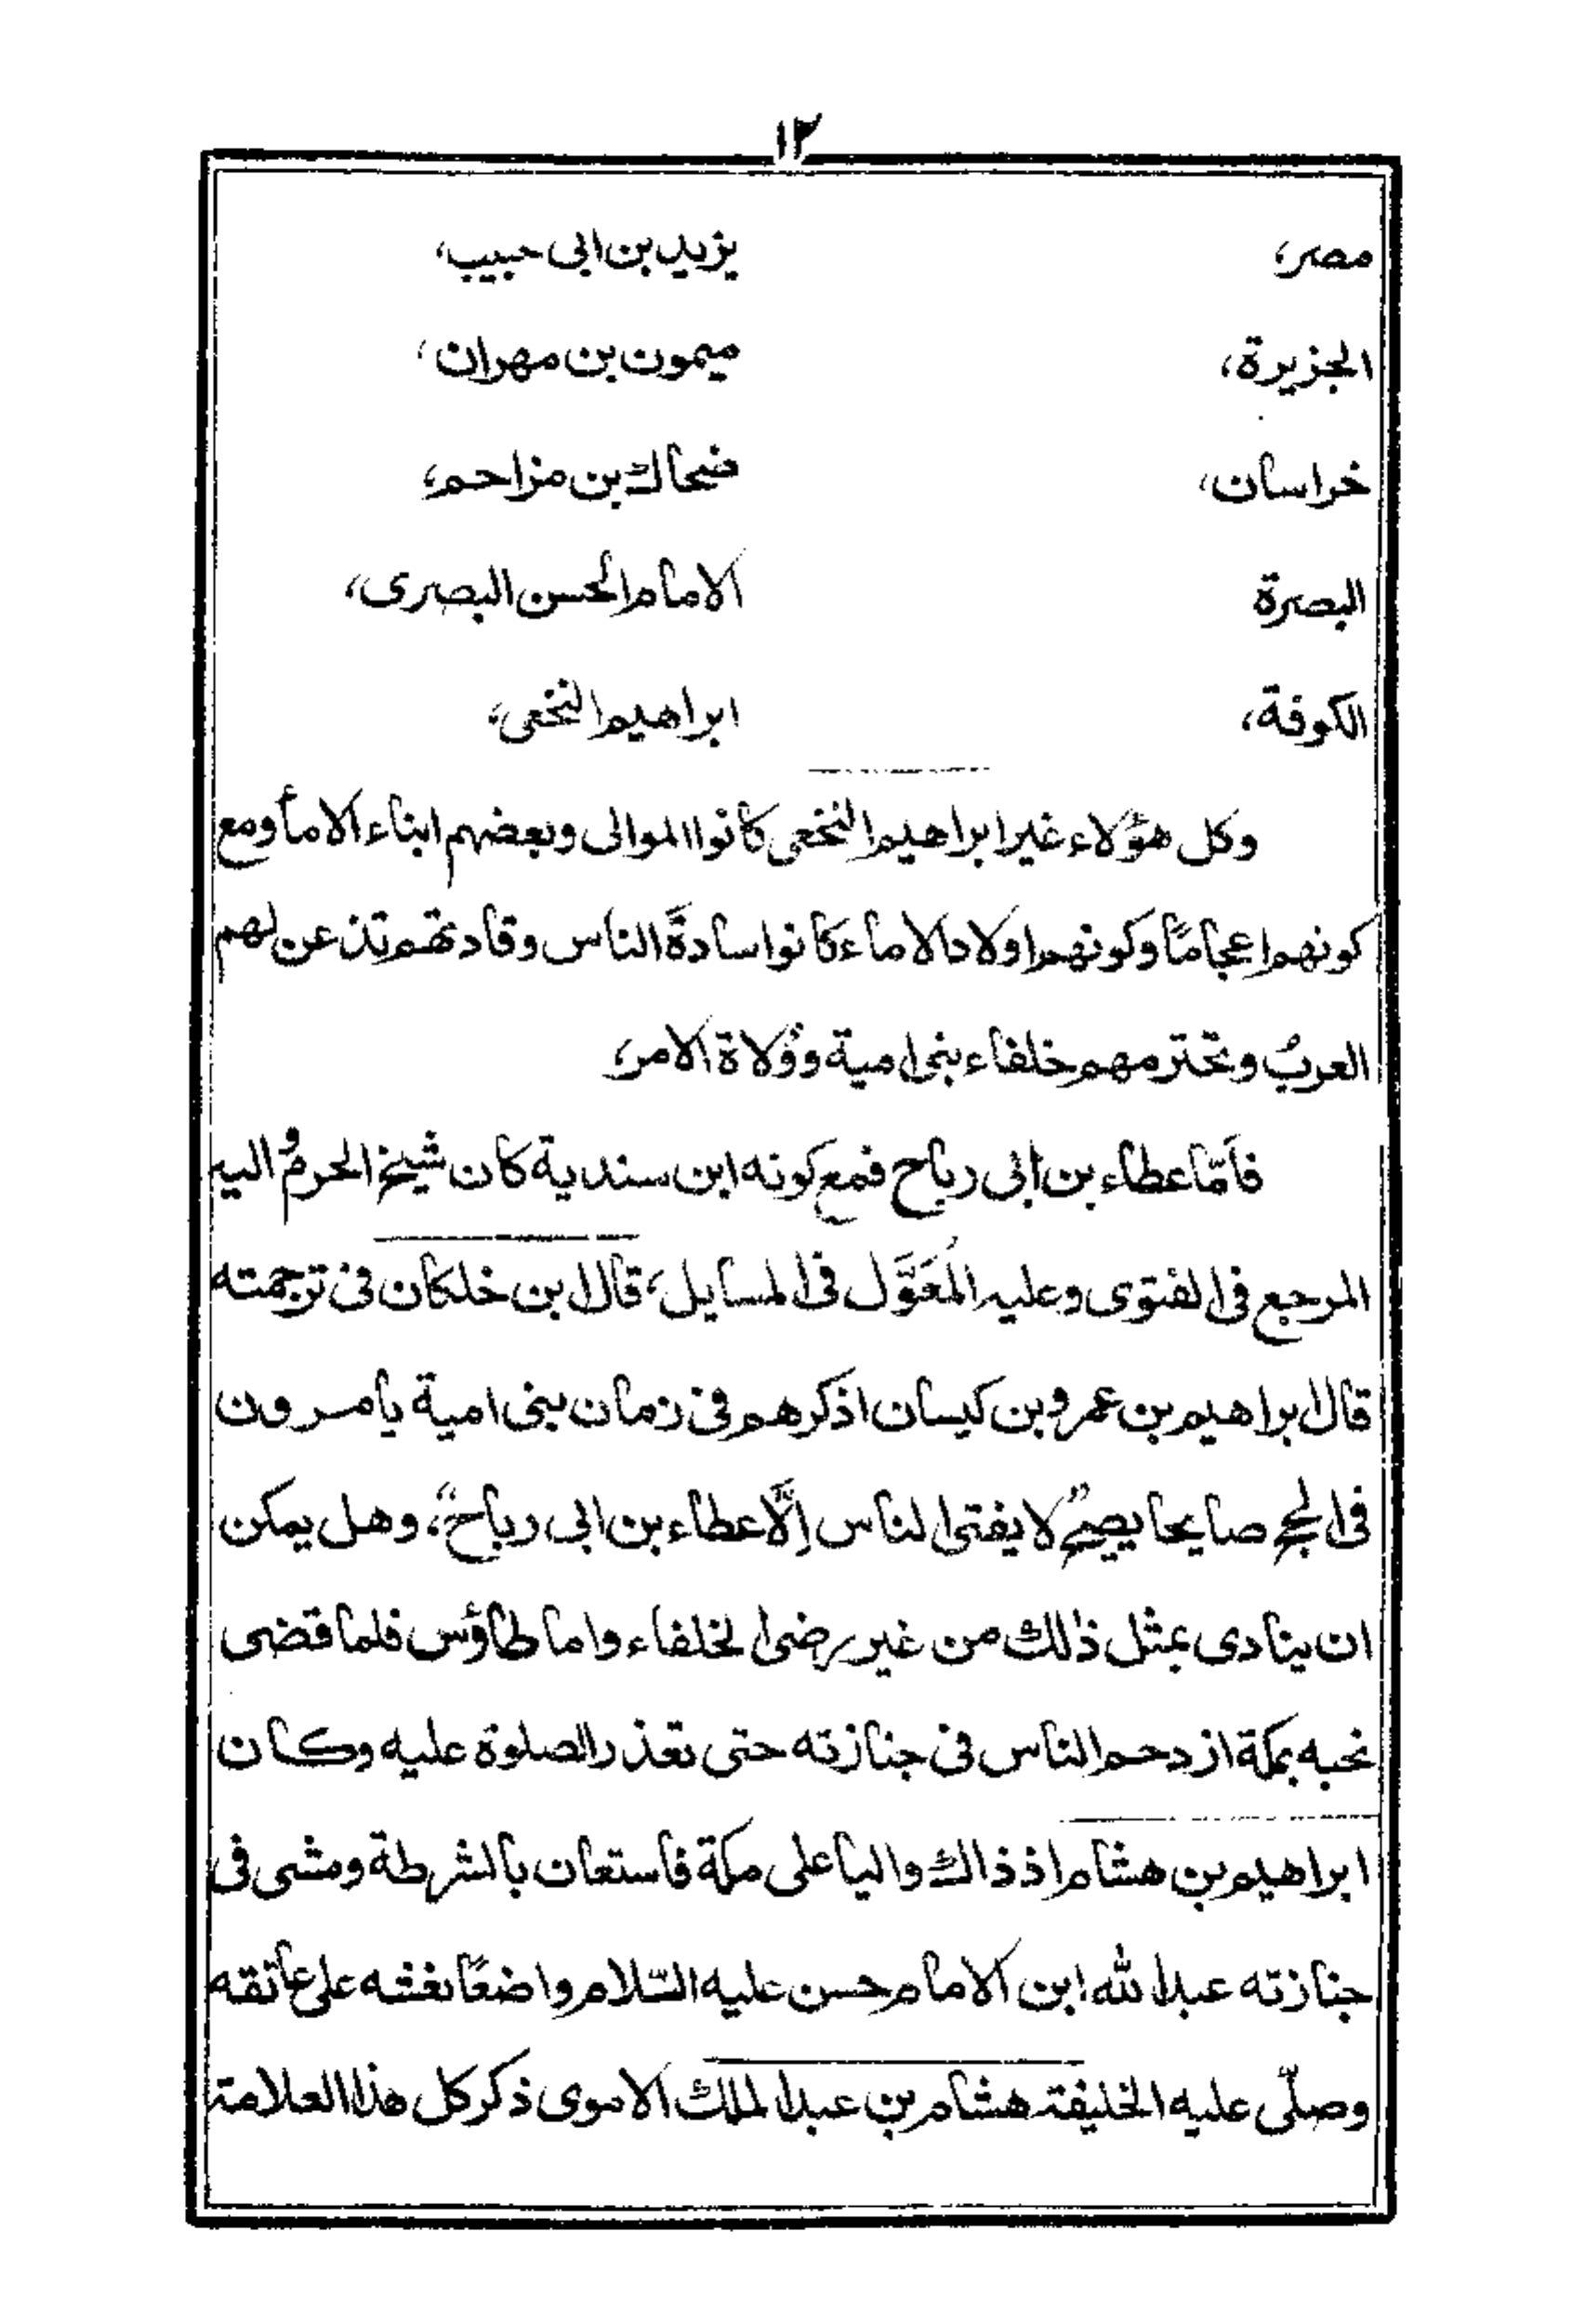 ١٢
مصر، يزيد بن ابى حبيب،
الجزيرة، ميمون بن مهران،
خراسان، ضحاك بن مزاحم،
البصرة الامام الحسن البصرى،
الكوفة، ابراهيم النخعى،
وكل هؤلاء غير ابراهيم النخعى كانوا الموالى وبعضهم ابناء الامأ ومع
كونهم اعجاماً وكونهم اولاد الاماء كانوا سادةَ الناس وقادتهم تذعن لهم
العربُ وتحترمهم خلفاء بنى امية ووُلاة الامر،
فأمّا عطاء بن ابى رباح فمع كونه ابن سندية كان شيخ الحرم وُ اليه
المرجع فى الفتوى وعليه المُعَوَّل فى المسايل، قال ابن خلكان فى ترجمته
قال ابراهيم بن عمرو بن كيسان اذكرهم فى زمان بنى امية يامرون
فى الحج صايحا يصيح لا يفتى الناس إلّا عطاء بن ابى رباح“، وهل يمكن
ان ينادى بمثل ذالك من غير رضى الخلفاء واما طاؤس فلما قضى
نحبه بمكة ازدحم الناس فى جنازته حتى تعذر الصلوة عليه وكان
ابراهيم بن هشام اذ ذاك واليا على مكة فاستعان بالشرطة ومشى فى
جنازته عبد الله ابن الامام حسن عليه السّلام واضعًا نعشه على عاتقه
وصلّى عليه الخليفة هشام بن عبد الملك الاموى ذكر كل هذا العلامة